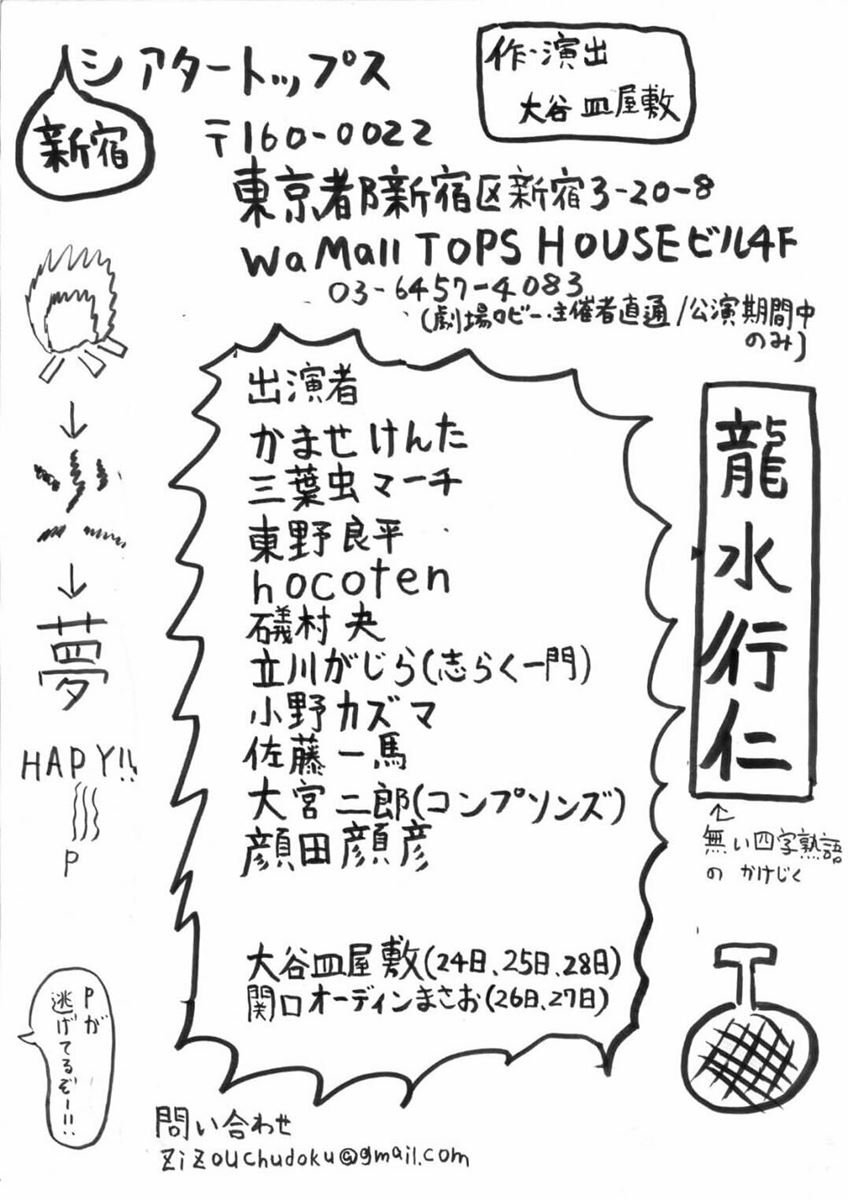 新宿
シアタートップス
作・演出
大谷皿屋敷
〒160-0022
東京都新宿区新宿3-20-8
WaMall TOPS HOUSEビル4F
03-6457-4083
(劇場ロビー・主催者直通/公演期間中
のみ)
出演者
かませけんた
三葉虫マーチ
東野良平
hocoten
礒村夬
立川がじら(志らく一門)
小野カズマ
佐藤一馬
大宮二郎(コンプソンズ)
顔田顔彦
大谷皿屋敷(24日、25日、28日)
関口オーディンまさお(26日、27日)
龍水行仁
↑
無い四字熟語
の かけじく
↓
↓
夢
HAPY!!
P
Pが
逃げてるぞー!!
問い合わせ
zizouchudoku@gmail.com